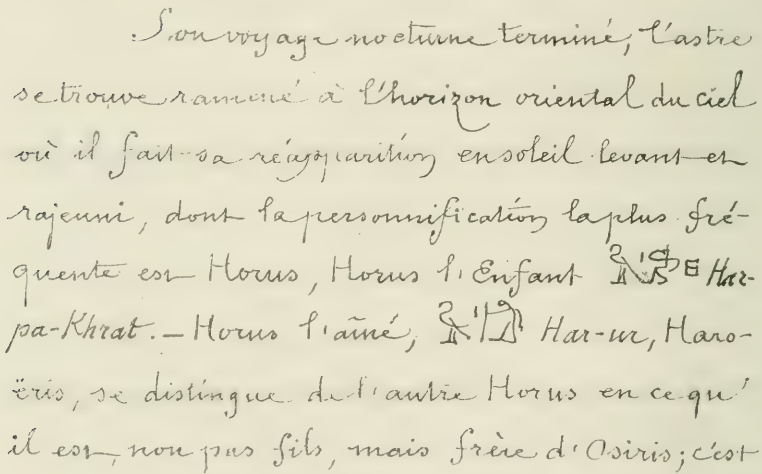 Son voyage nocturne terminé, l'astre
se trouve ramené à l'horizon oriental du ciel
où il fait sa réapparition en soleil levant et
rajeuni, dont la personnification la plus fré-
quente est Horus, Horus l'Enfant Har-
pa-Khrat. — Horus l'aîné, Har-ur, Haro-
ëris, se distingue de l'autre Horus en ce qu'
il est, non pas fils, mais frère d'Osiris; c'est